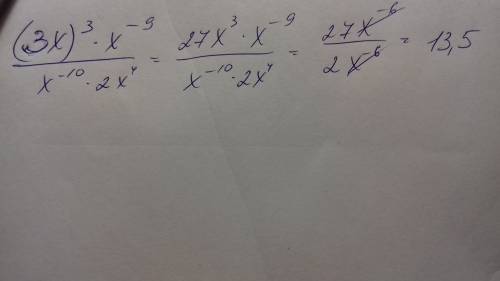 (3x)³ · x⁻⁹ / x⁻¹⁰ · 2x⁴ = 27x³ · x⁻⁹ / x⁻¹⁰ · 2x⁴ = 27x⁻⁶ / 2x⁻⁶ = 13,5